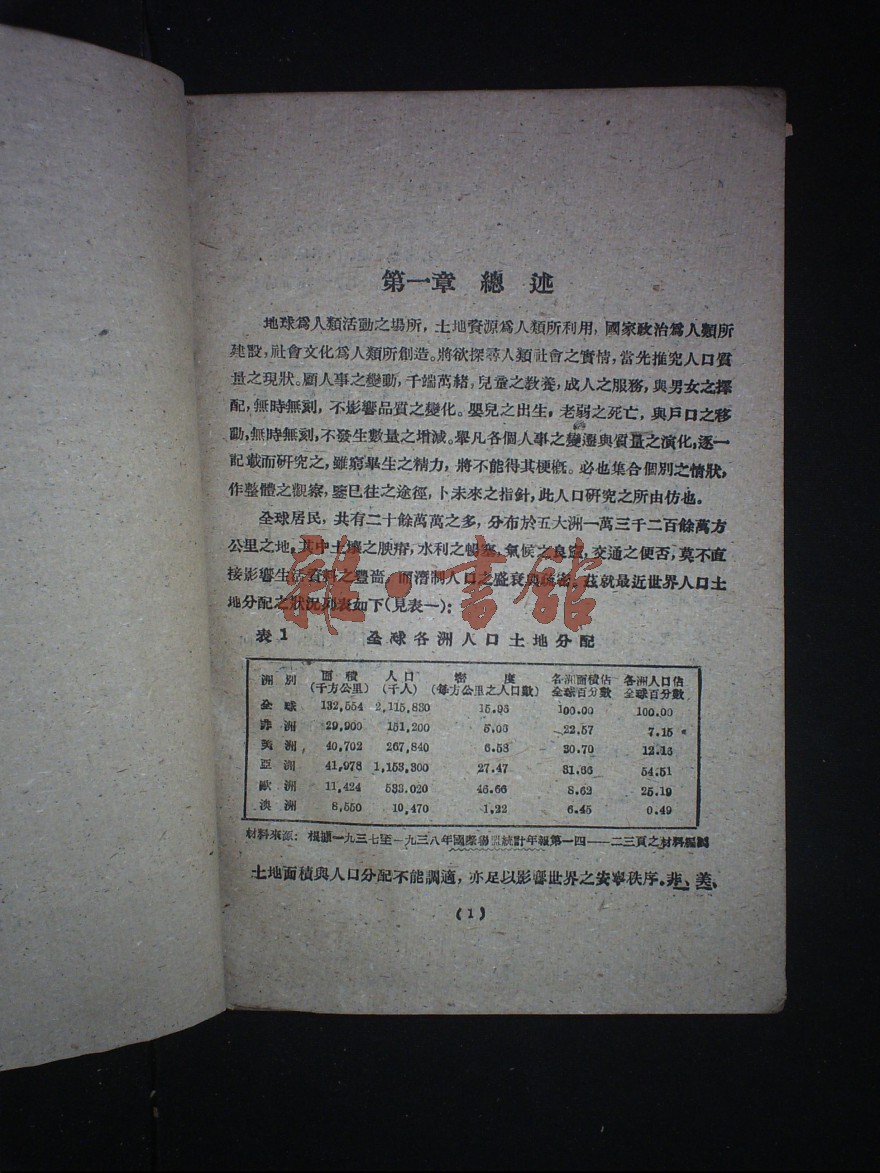 第一章 總述
地球爲人類活動之場所，土地資源爲人類所利用，國家政治爲人類所
建設，社會文化爲人類所創造。將欲探尋人類社會之實情，當先推究人口質
量之現狀。顧人事之變動，千端萬緒，兒童之教養，成人之服務，與男女之擇
配，無時無刻，不影響品質之變化。嬰兒之出生，老弱之死亡，與戶口之移
動，無時無刻，不發生數量之增減。舉凡各個人事之變遷與質量之演化，逐一
記載而研究之，雖窮畢生之精力，將不能得其梗概。必也集合個別之情狀，
作整體之觀察，鑒已往之途徑，卜未來之指針，此人口研究之所由仿也。
全球居民，共有二十餘萬萬之多，分布於五大洲一萬三千二百餘萬方
公里之地，其中土壤之腴瘠，水利之暢塞，氣候之良窳，交通之便否，莫不直
接影響生活資料之豐嗇，而潛制人口之盛衰與疏密。茲就最近世界人口土
地分配之狀況列表如下（見表一）：
雜·書館
表1 全球各洲人口土地分配
洲別 面積（千方公里） 人口（千人） 密度（每方公里之人口數） 各洲面積佔全球百分數 各洲人口佔全球百分數
全球 132,554 2,115,830 15.96 100.00 100.00
非洲 29,900 151,200 5.06 22.57 7.15
美洲 40,702 267,840 6.58 30.70 12.16
亞洲 41,978 1,153,300 27.47 31.66 54.51
歐洲 11,424 533.020 46.66 8.62 25.19
澳洲 8,550 10,470 1.22 6.45 0.49
材料來源：根據一九三七至一九三八年國際聯盟統計年報第一四——二三頁之材料編製
土地面積與人口分配不能調適，亦足以影響世界之安寧秩序。非、美、
(1)